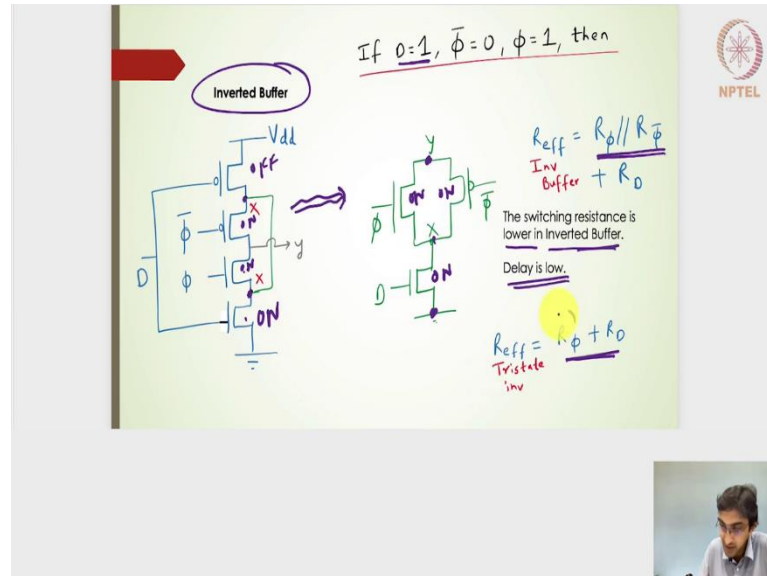 If D=1, ϕ̅=0, ϕ=1, then
NPTEL
Inverted Buffer
Vdd
OFF
X
ϕ̅
ON
y
ϕ
ON
D
X
ON
y
ON
ON
ϕ
ϕ̅
X
D
ON
Reff = Rϕ // Rϕ̅
Inv
Buffer + RD
The switching resistance is
lower in Inverted Buffer.
Delay is low.
Reff = Rϕ + RD
Tristate
inv